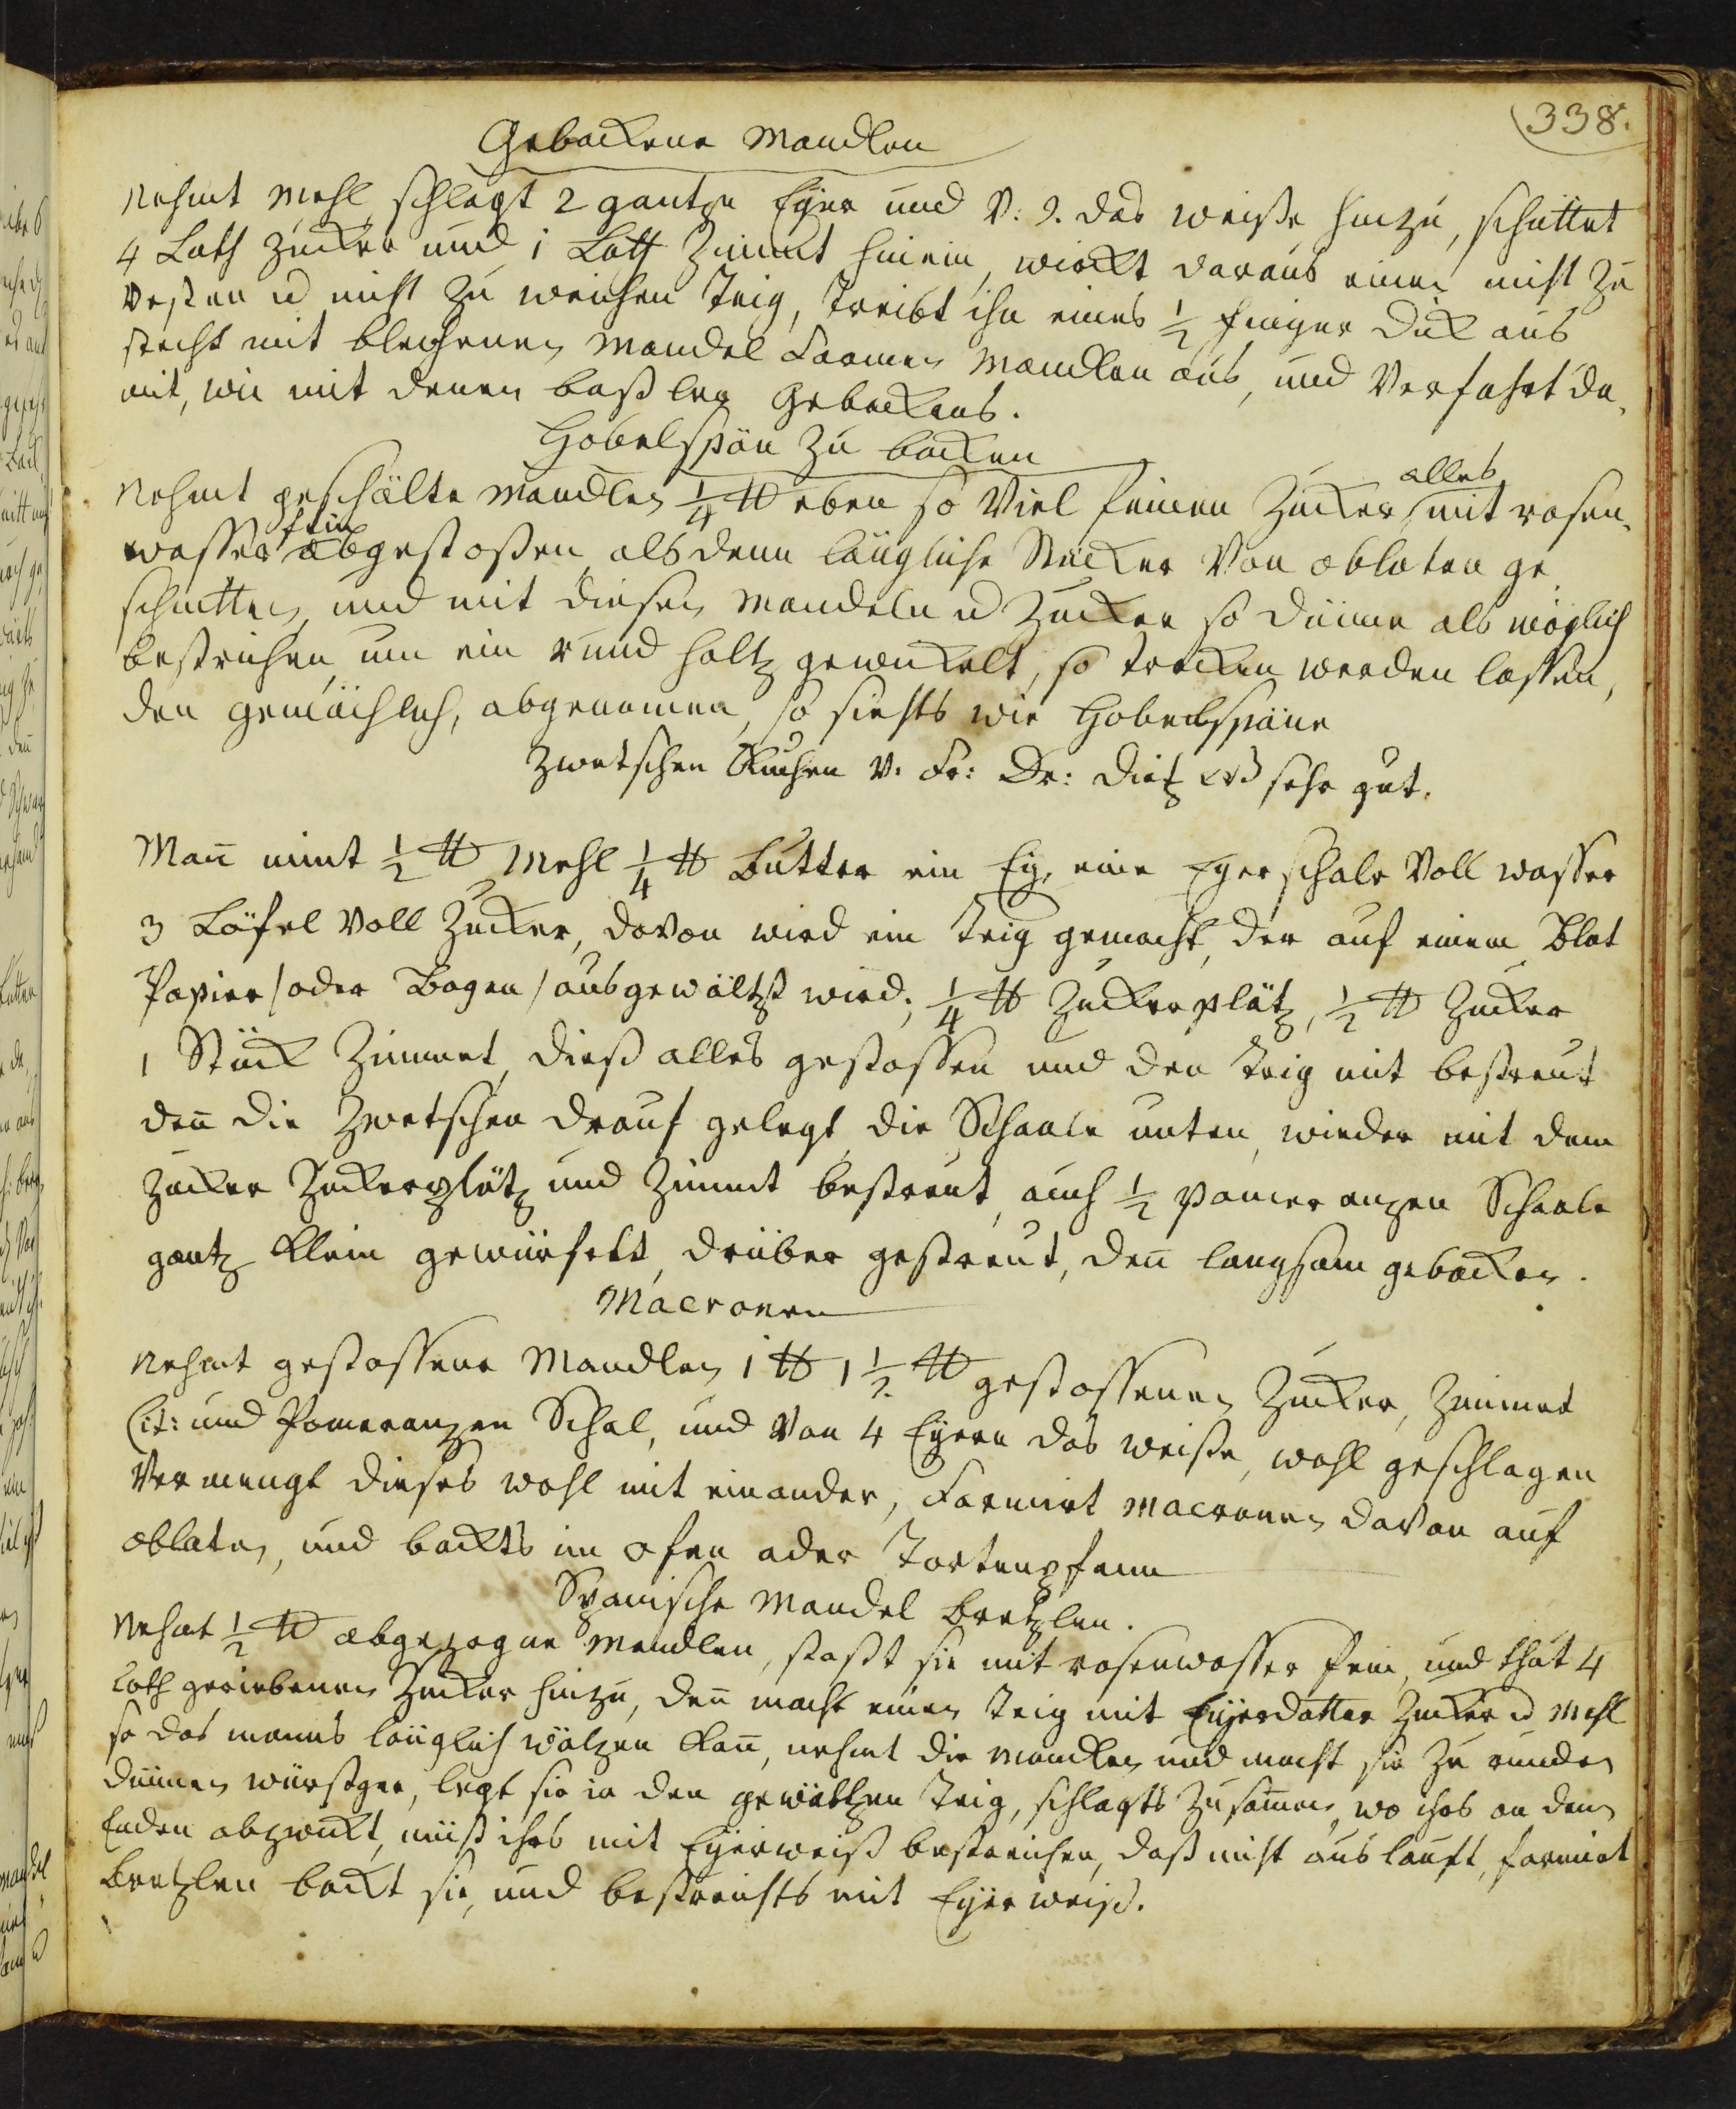 338.
Gebackene Mandlen
Nehmt Mehl, schlagt 2 gantze Eyer und v: 2. das weiße hinzu, schüttet
4 Loth Zucker und 1 Loth Zimmt hinein, wirckt daraus einen nicht zu
vesten u nicht zu weichen Teig, treibt ihn eines ½ finger dick aus
stecht mit blechenen Mandel Formen Mandlen aus, und verfahrt da-
mit, wie mit denen Baßler Gebackens.
Hobelspän zu backen
Nehmt geschälte Mandlen ¼ ℔ eben so viel feinen Zucker, alles mit rosen-
wasser fein abgestoßen, alsdenn längliche Stücker von oblaten ge-
schnitten, und mit diesen Mandeln u Zucker so dünne als möglich
bestrichen, um ein rund holtz gewickelt, so trocken werden lassen,
den gemächlich, abgenomen, so siehts wie Hobelspäne
Zwetschen Kuchen v. Fr: Dr: Dietz sehr gut.
Man̄ nimt ½ ℔ Mehl ¼ ℔ Butter ein Ey, eine Eyerschale voll wasser
3 Löfel voll Zucker, davon wird ein Teig gemacht, der auf einem Blat
Papier /oder Bogen/ ausgewältzt wird; ¼ ℔ Zuckerplätz, ½ ℔ Zucker
1 Stück Zimmet, dieß alles gestossen und den Teig mit bestreut
den̄ die Zwetschen drauf gelegt, die Schaale unten, wieder mit dem
Zucker Zuckerplätz und Zimmt bestreut, auch ½ pomeranzen Schaale
gantz klein gewürfelt, drüber gestreut, den̄ langsam gebacken.
Macronen
Nehmt gestossene Mandlen 1 ℔ 1 ½ ℔ gestossenen Zucker, Zimmet
Cit: und Pomeranzen Schal, und von 4 Eyern das weiße, wohl geschlagen
vermengt dieses wohl mit einander, Formirt Macronen davon auf
oblaten, und backts im ofen oder Tortenpfann
Spanische Mandel Bretzlen.
Nehmt ½ ℔ abgezogne Mandlen, stoßt sie mit rosenwasser fein, und thut 4
Loth geriebenen Zucker hinzu, den̄ macht einen Teig mit Eyerdotter Zucker u Mehl
so das manns länglich wälzen kan̄, nehmt die Mandlen und macht sie zu runden
dünnen würstger, legt sie in den gewältzen Teig, schlagts zusamen, wo ihrs an den
Enden abzwickt, müßt ihrs mit Eyerweiß bestreichen, daß nicht auslauft, formirt
Bretzlen backt sie, und bestreichts mit Eyerweiß.